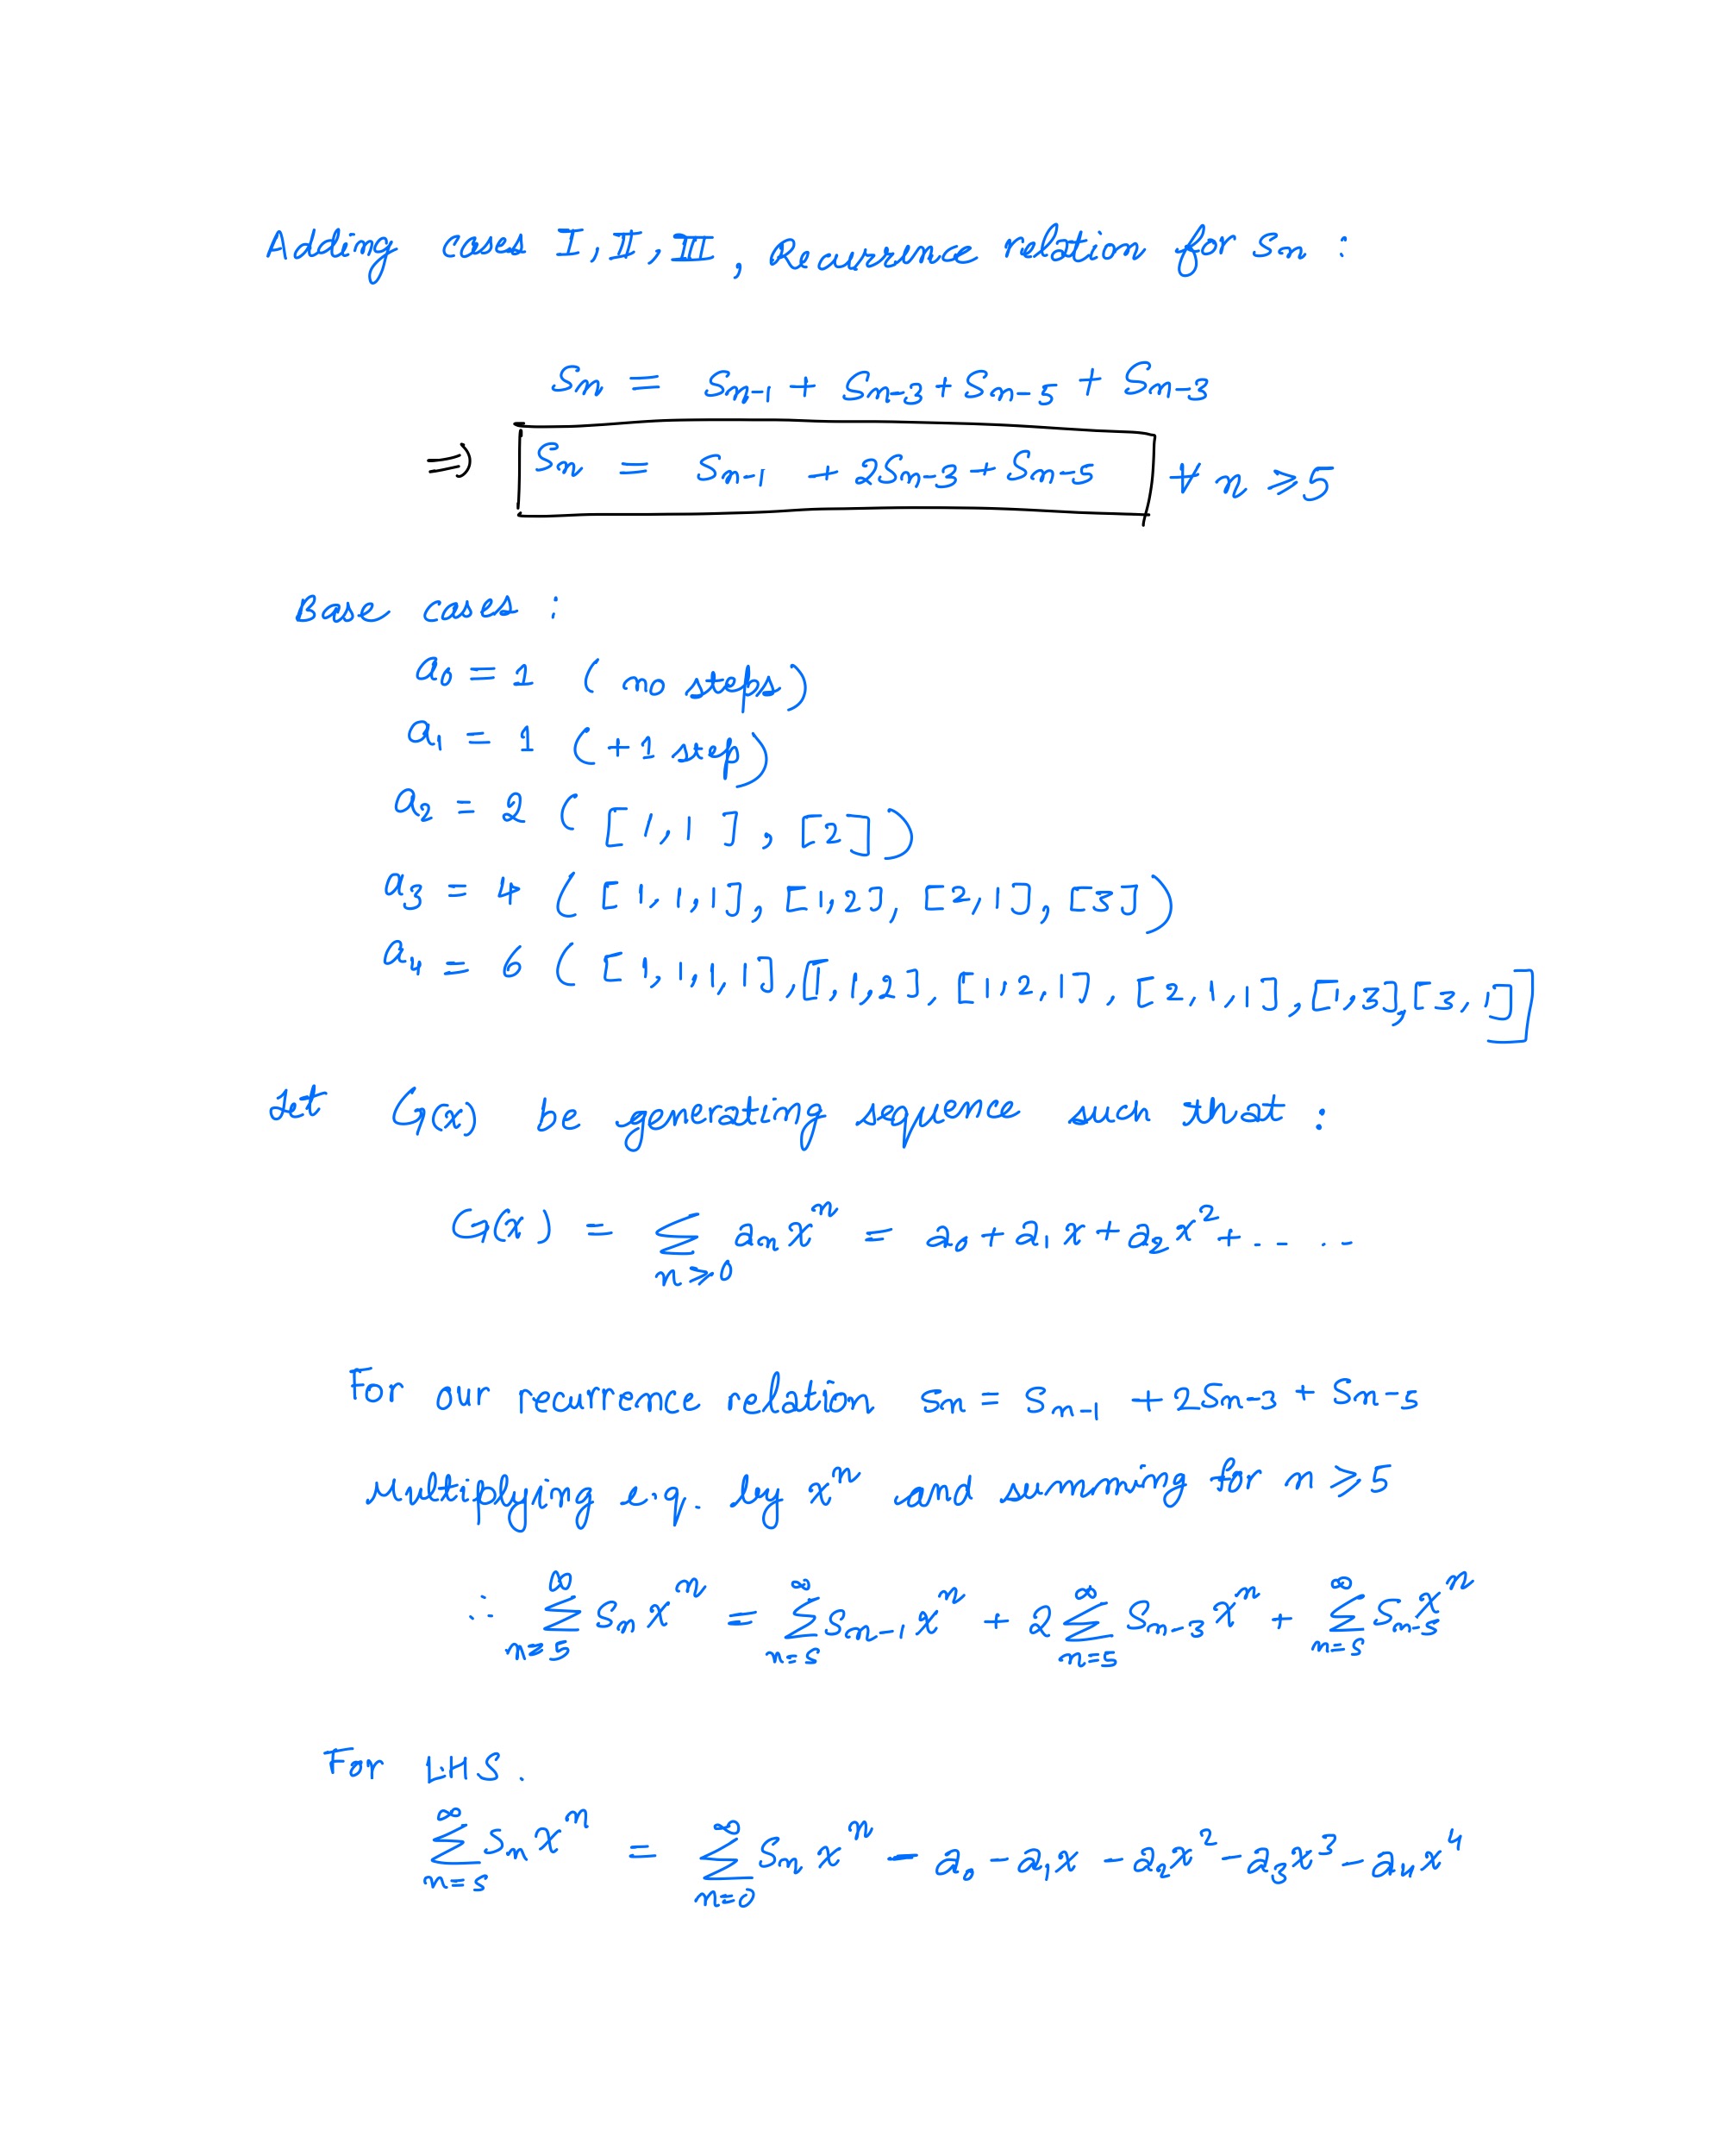 Adding cases I, II, III, Recurrence relation for Sn :
Sn = Sn-1 + Sn-3 + Sn-5 + Sn-3
⇒ Sn = Sn-1 + 2Sn-3 + Sn-5 ∀ n ≥ 5
Base cases :
a0 = 1 ( no steps)
a1 = 1 (+1 step)
a2 = 2 ( [1,1], [2])
a3 = 4 ( [1,1,1], [1,2], [2,1], [3])
a4 = 6 ( [1,1,1,1], [1,1,2], [1,2,1], [2,1,1], [1,3], [3,1]]
Let G(x) be generating sequence such that :
G(x) = ∑n≥0 an x^n = a0 + a1 x + a2 x^2 + .. ..
For our recurrence relation Sn = Sn-1 + 2Sn-3 + Sn-5
Multiplying e.q. by x^n and summing for n ≥ 5
∴ ∑n=5^∞ Sn x^n = ∑n=5^∞ Sn-1 x^n + 2∑n=5^∞ Sn-3 x^n + ∑n=5^∞ Sn-5 x^n
For LHS.
∑n=5^∞ Sn x^n = ∑n=0^∞ Sn x^n - a0 - a1x - a2x^2 - a3x^3 - a4x^4